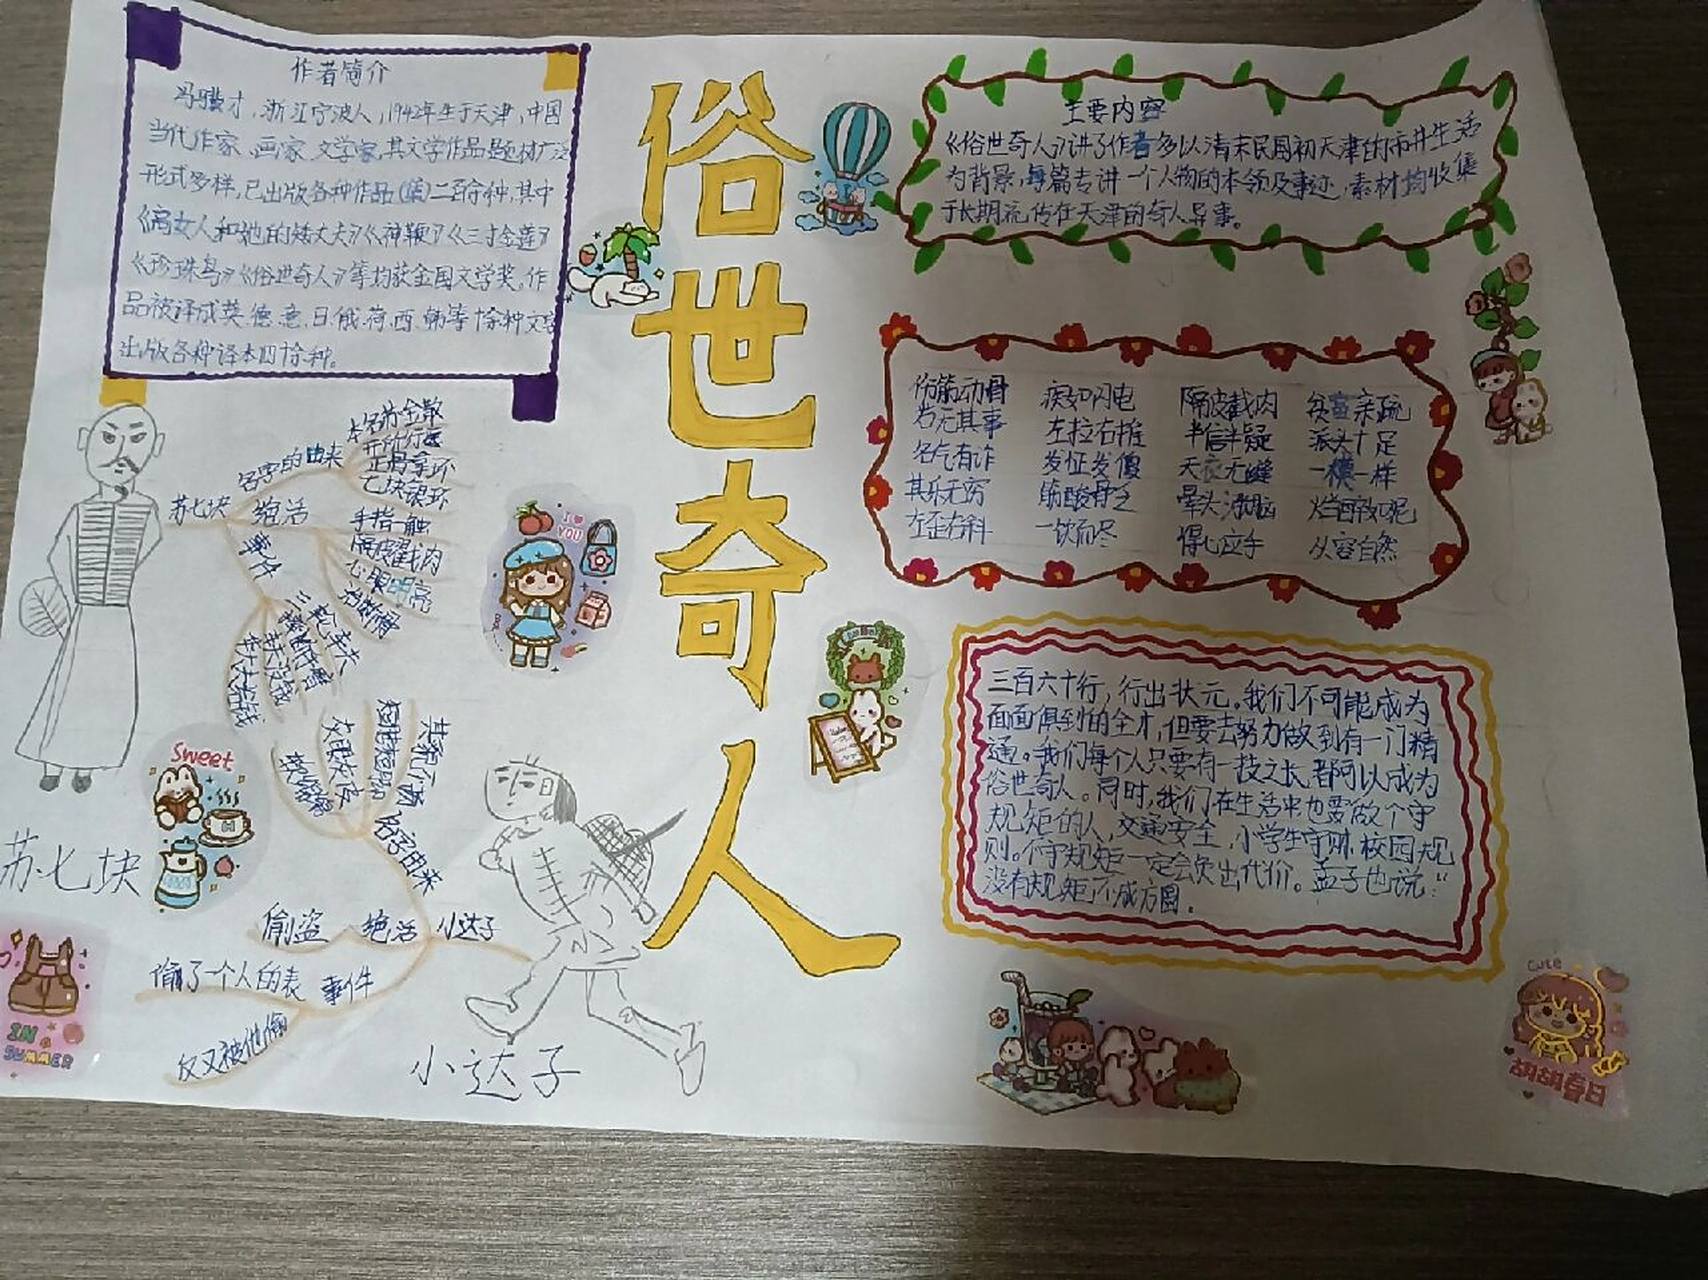 作者简介
冯骥才,浙江宁波人,1942年生于天津,中国
当代作家、画家、文学家,其文学作品题材广泛
形式多样,已出版各种作品(集)二百余种,其中
《高女人和她的矮丈夫》《神鞭》《三寸金莲》
《珍珠鸟》《俗世奇人》等均获全国文学奖。作
品被译成英.德.意.日.俄.荷.西.韩等十余种文字
出版各种译本四十余种。
俗世奇人
主要内容
《俗世奇人》讲了作者多以清末民国初天津的市井生活
为背景,每篇专讲一个人物的本领及事迹,素材均收集
于长期流传在天津的奇人异事。
伤筋动骨 疾如闪电 隔皮截肉 贫富亲疏
若无其事 左拉右推 半信半疑 派头十足
名气有诈 发怔发傻 天衣无缝 一模一样
其乐无穷 筋酸骨乏 晕头涨脑
左歪右斜 一饮而尽 得心应手 从容自然
三百六十行,行出状元。我们不可能成为
面面俱到的全才,但要去努力做到有一门精
通。我们每个人只要有一技之长,都可以成为
俗世奇人。同时,我们在生活中也要做个守
规矩的人,交通安全,小学生守则,校园规
则。不守规矩一定会负出代价。孟子也说:“
没有规矩不成方圆.
苏七块
名字的由来
本名苏金散
七块银环
绝活
手指一触
隔皮截肉
心眼明亮
事件
三缺一
苏七块
I ♥ YOU
Sweet
共貌不扬
短胳短腿
名字由来
小达子
绝活
偷盗
事件
偷了一个人的表
反又被他偷
小达子
IN SUMMER
Cute
胡胡春日